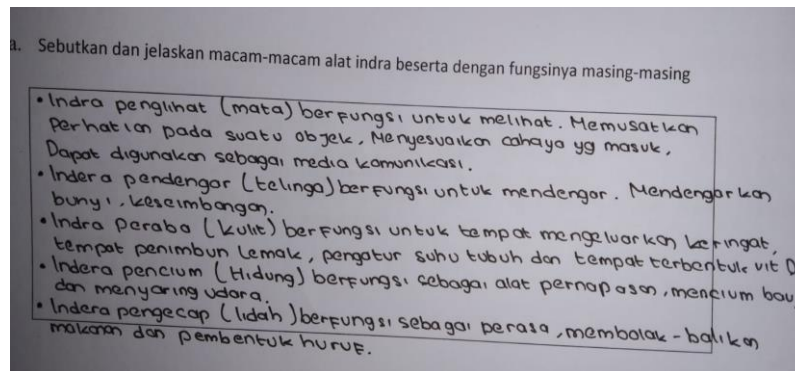 a. Sebutkan dan jelaskan macam-macam alat indra beserta dengan fungsinya masing-masing
• Indra penglihat (mata) berfungsi untuk melihat. Memusatkan
Perhatian pada suatu objek, Menyesuaikan cahaya yg masuk,
Dapat digunakan sebagai media komunikasi.
• Indera pendengar (telinga) berfungsi untuk mendengar. Mendengarkan
bunyi, keseimbangan.
• Indra Peraba (kulit) berfungsi untuk tempat mengeluarkan keringat,
tempat penimbun lemak, pengatur suhu tubuh dan tempat terbentuk vit D
• Indera pencium (Hidung) berfungsi sebagai alat pernapasan, mencium bau
dan menyaring udara.
• Indera pengecap (lidah) berfungsi sebagai perasa, membolak-balikan
makanan dan pembentuk huruf.